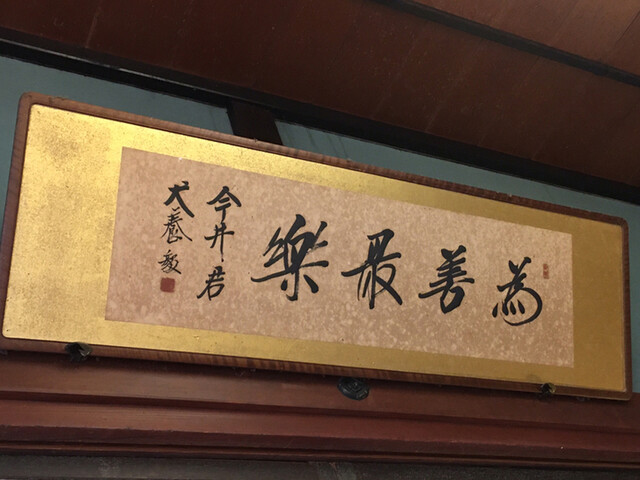 為善最樂
今井君
犬養毅